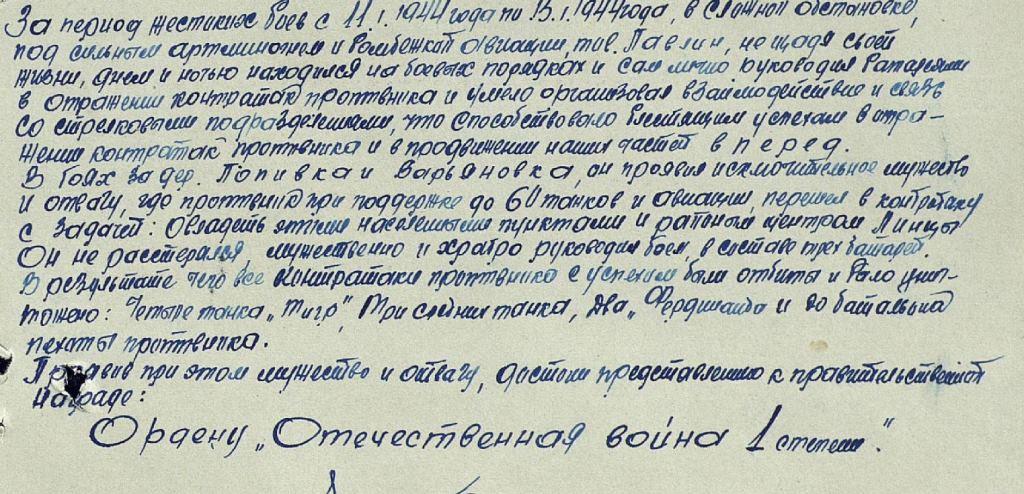 За период жестиких боев с 11.I.1944 года по 13.I.1944 года, в сложной обстановке,
под сильным артминогнем и бомбежкой авиации, тов. Павлин, не щадя своей
жизни, днем и ночью находился на боевых порядках и сам лично руководил батареями
в отражении контратак противника и умело организовал взаимодействие и связь
со стрелковыми подразделениями, что способствовало блестящим успехам в отра-
жении контратак противника и в продвижении наших частей вперед.
В боях за дер. Попивка и Варьяновка, он проявил исключительное мужество
и отвагу, где противник при поддержке до 60 танков и авиации, перешел в контратаку
с задачей: Овладеть этими населенными пунктами и районым центром Линцы
Он не растерялся, мужественно и храбро руководил боем, в составе трех батарей.
В результате чего все контратаки противника с успехом были отбиты и было унич-
тожено: Четыре танка „Тигр", Три средних танка, два „Фердинанда и до батальона
пехоты противника.
Проявив при этом мужество и отвагу, достоин представлению к правительственной
награде:
Ордену „Отечественная война 1 степени".